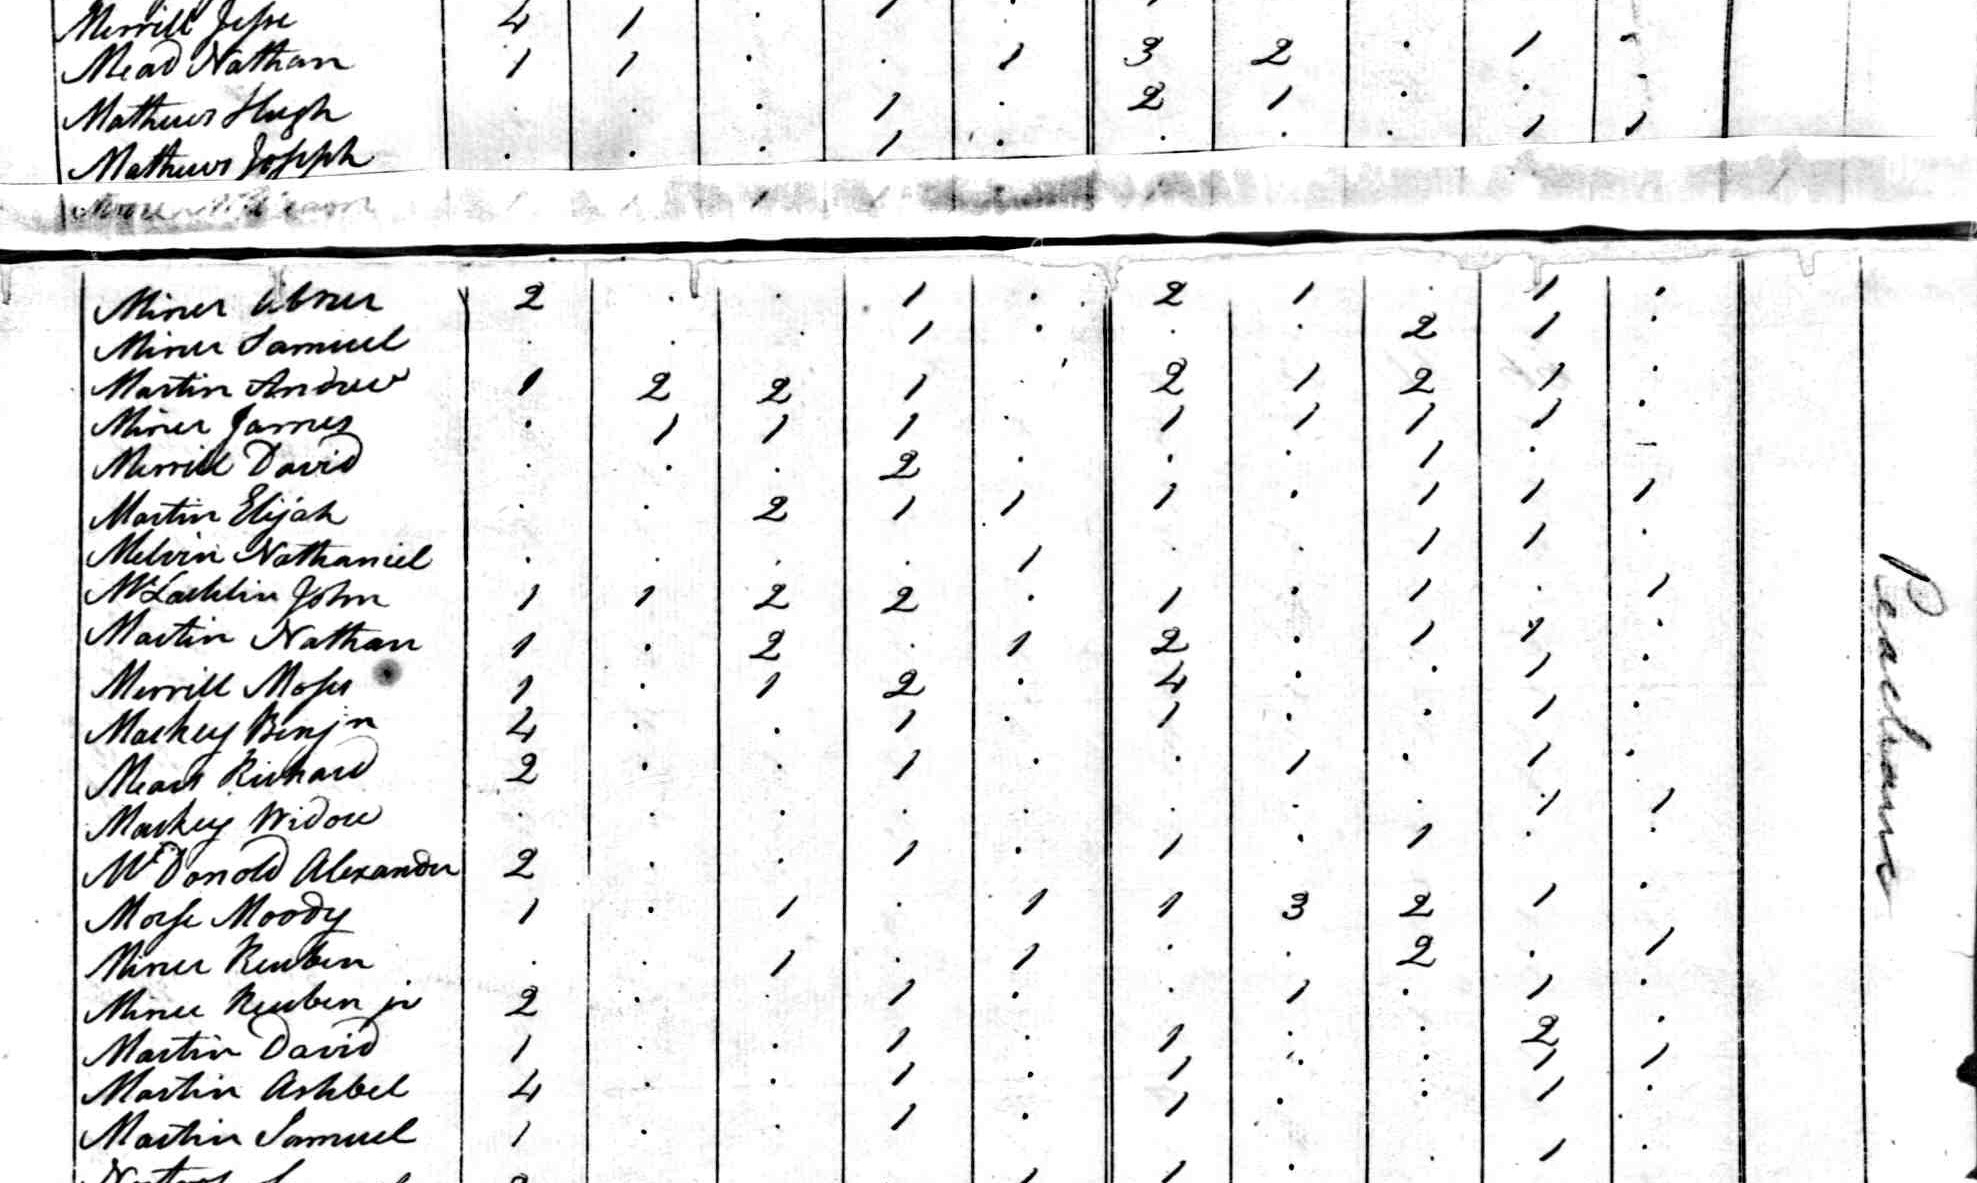 Merrill Jesse 4 1 . 1 . 1
Mead Nathan 1 1 . . 1 3 2 . 1 .
Mathews Hugh . . . 1 . 2 1 . . .
Mathews Joseph . . . 1 . . . . 1 1
Miner Abner 2 . . 1 . 2 1 . 1 .
Miner Samuel . . . 1 . . . 2 1 .
Martin Andrew 1 2 2 1 . 2 1 2 1 .
Miner James . 1 1 1 . 1 1 1 1 .
Merrill David . . . 2 . . . 1 . -
Martin Elijah . . 2 1 1 1 . 1 1 1
Melvin Nathaniel . . . . 1 . . 1 1 .
McLachlin John 1 1 2 2 . 1 . 1 . 1
Martin Nathan 1 . 2 . 1 2 . 1 1 .
Merrill Moses 1 . 1 2 . 4 . . 1 .
Mackey Benjn 4 . . 1 . 1 . . 1 .
Mears Richard 2 . . 1 . . 1 . 1 .
Mackey Widow . . . . . . . . 1 1
McDonold Alexander 2 . . 1 . 1 . 1 . .
Morse Moody 1 . 1 . 1 1 3 2 1 .
Miner Reuben . . 1 . 1 . . 2 . 1
Miner Reuben jr 2 . . 1 . . 1 . 1 .
Martin David 1 . . 1 . 1 . . 2 .
Martin Ashbel 4 . . 1 . 1 . . 1 1
Martin Samuel 1 . . 1 . 1 . . 1 .
Peacham